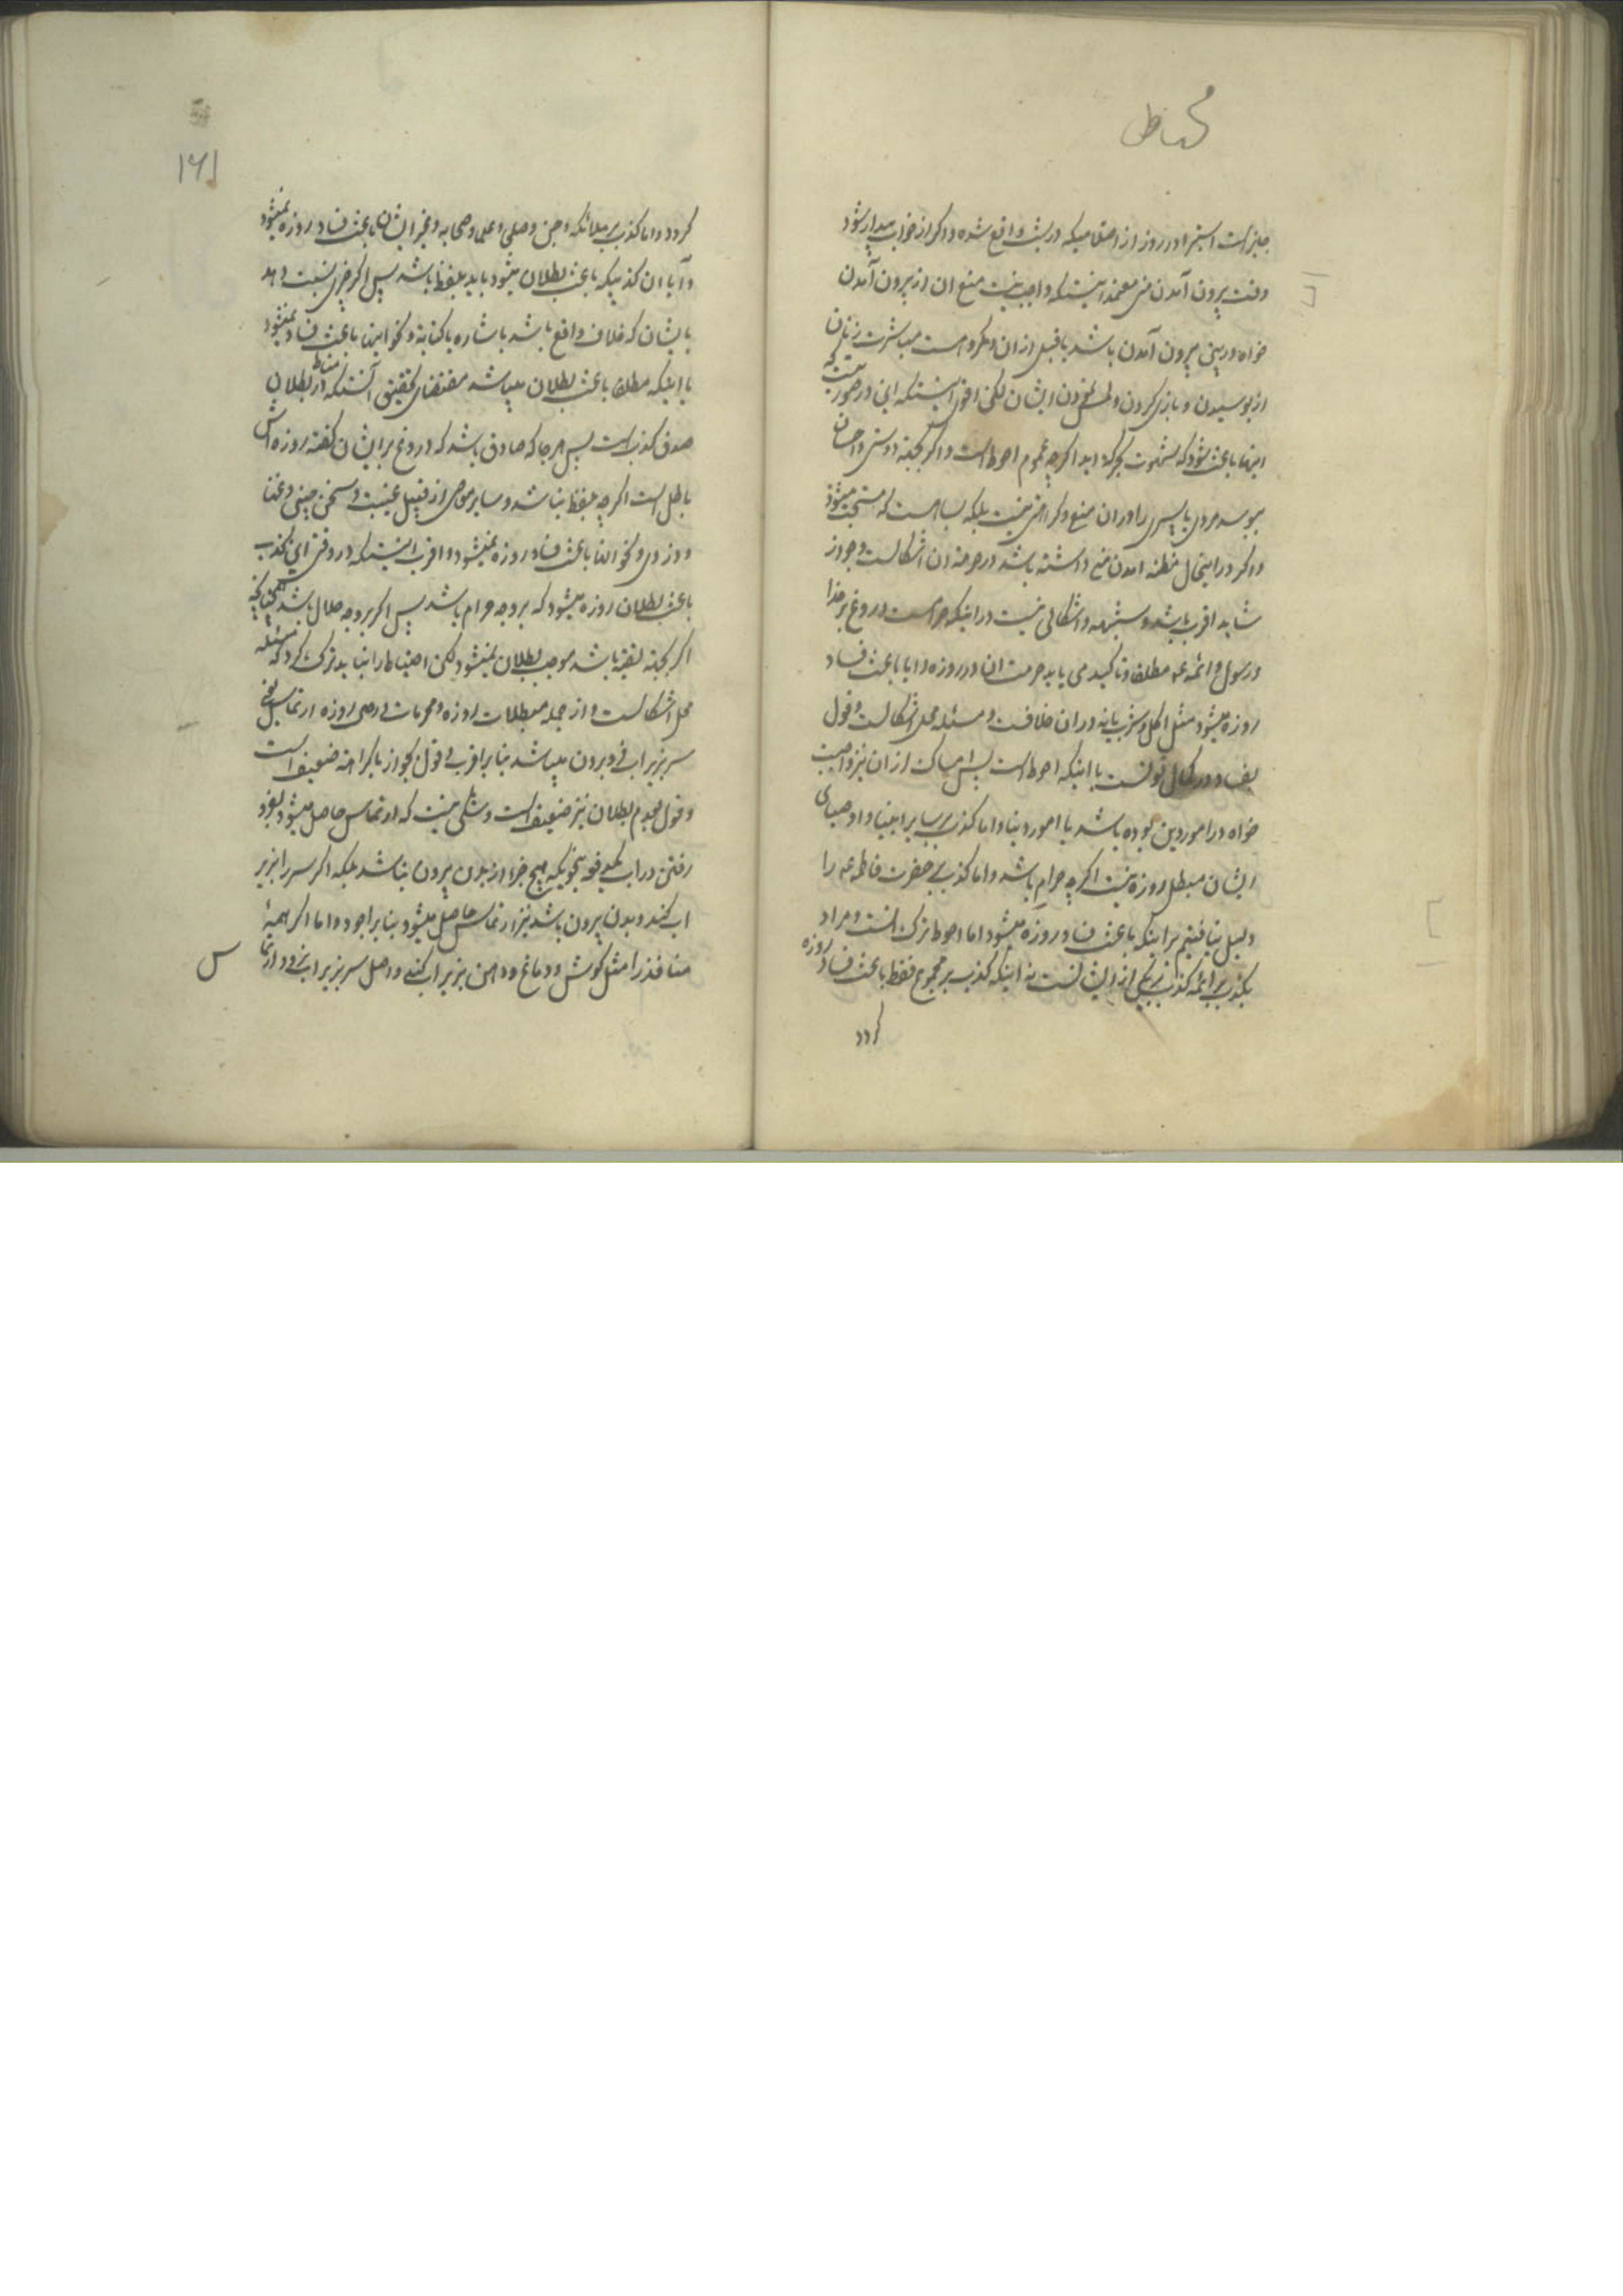 جایز است استبراء در روز از احتلامیکه در شب واقع شده و اگر از خواب بیدار شود
وقت بیرون آمدن منی معتمد اینستکه واجب نیست منع ان از بیرون آمدن
خواه در بین بیرون آمدن باشد یا قبل از ان و مکروهست مباشرت زنان
از بوسیدن و بازی کردن و لمس نمودن ایشان لکن اقوی اینستکه این در صورتیست که
اینها باعث شود که شهوت بحرکة اید اگرچه عموم احوط است و اگر بجهة دوستی و احسان
ببوسد مردی یا پسری را در ان منع و کراهتی نیست بلکه بسا هست که مستحب میشود
و اگر در اینحال مظنه امدن منی داشته باشد در حرمة ان اشکالست و جواز
شاید اقرب باشد و شبهه و اشکالی نیست در اینکه حرامست دروغ بر خدا
و رسول و ائمه عه مطلقا و تاکید می یابد حرمت ان در روزه و ایا باعث فساد
روزه میشود مثل اکل و شرب یا نه در ان خلافست و مسئله محل اشکالست و قول
بفساد در کمال قوتست با اینکه احوط است پس امساک از ان نیز واجبست
خواه در امور دین بوده باشد یا امور دنیا و اما کذب بر سایر انبیا و اوصیای
ایشان مبطل روزه نیست اگرچه حرام باشد و اما کذب بر حضرت فاطمه عه را
دلیل نیافتیم بر اینکه باعث فساد روزه میشود اما احوط ترک انست و مراد
بکذب بر ائمه کذب بر یکی از ایشانست نه اینکه کذب بر مجموع فقط باعث فساد روزه
گردد
۱۶۱
گردد و اما کذب بر ملائکه و جن و صلحا و علما و صحابه و غیر ایشان باعث فساد روزه نمیشود
و آیا ان کذبیکه باعث بطلان میشود باید بلفظ باشد پس اگر خبری نسبت دهد
بایشان که خلاف واقع باشد باشاره یا کتابة و نحو اینها باعث فساد نمیشود
یا اینکه مطلقا باعث بطلان میباشد مقتضای تحقیق آنستکه مناط در بطلان
صدق کذبست پس هر جا که صادق باشد که دروغ بر ایشان گفته روزه اش
باطل است اگرچه بلفظ نباشد و سایر معاصی از قبیل غیبت و سخن چینی و غنا
و دزدی و نحو انها باعث فساد روزه نمیشود و اقرب اینستکه در وقتی این کذب
باعث بطلان روزه میشود که بر وجه حرام باشد پس اگر بر وجه حلال باشد همچنانچه
اگر بجهة تقیه باشد موجب بطلان نمیشود لکن احتیاط را نباید ترک کرد که مسئله
محل اشکالست و از جمله مبطلات روزه و محرمات در روزه ارتماس یعنی
سر بزیر اب فرو بردن میباشد بنا بر اقرب و قول بجواز با کراهة ضعیف است
و قول بعدم بطلان نیز ضعیف است و شکی نیست که ارتماس حاصل میشود بفرو
رفتن در اب یکدفعه بنحویکه هیچ جزء از بدن بیرون نباشد بلکه اگر سر را بزیر
اب کند و بدن بیرون باشد نیز ارتماس حاصل میشود بنا بر اجود و اما اگر همهٔ
منافذ را مثل گوش و دماغ و دهن بزیر اب کند و اصل سر بزیر اب نرود ارتما
س